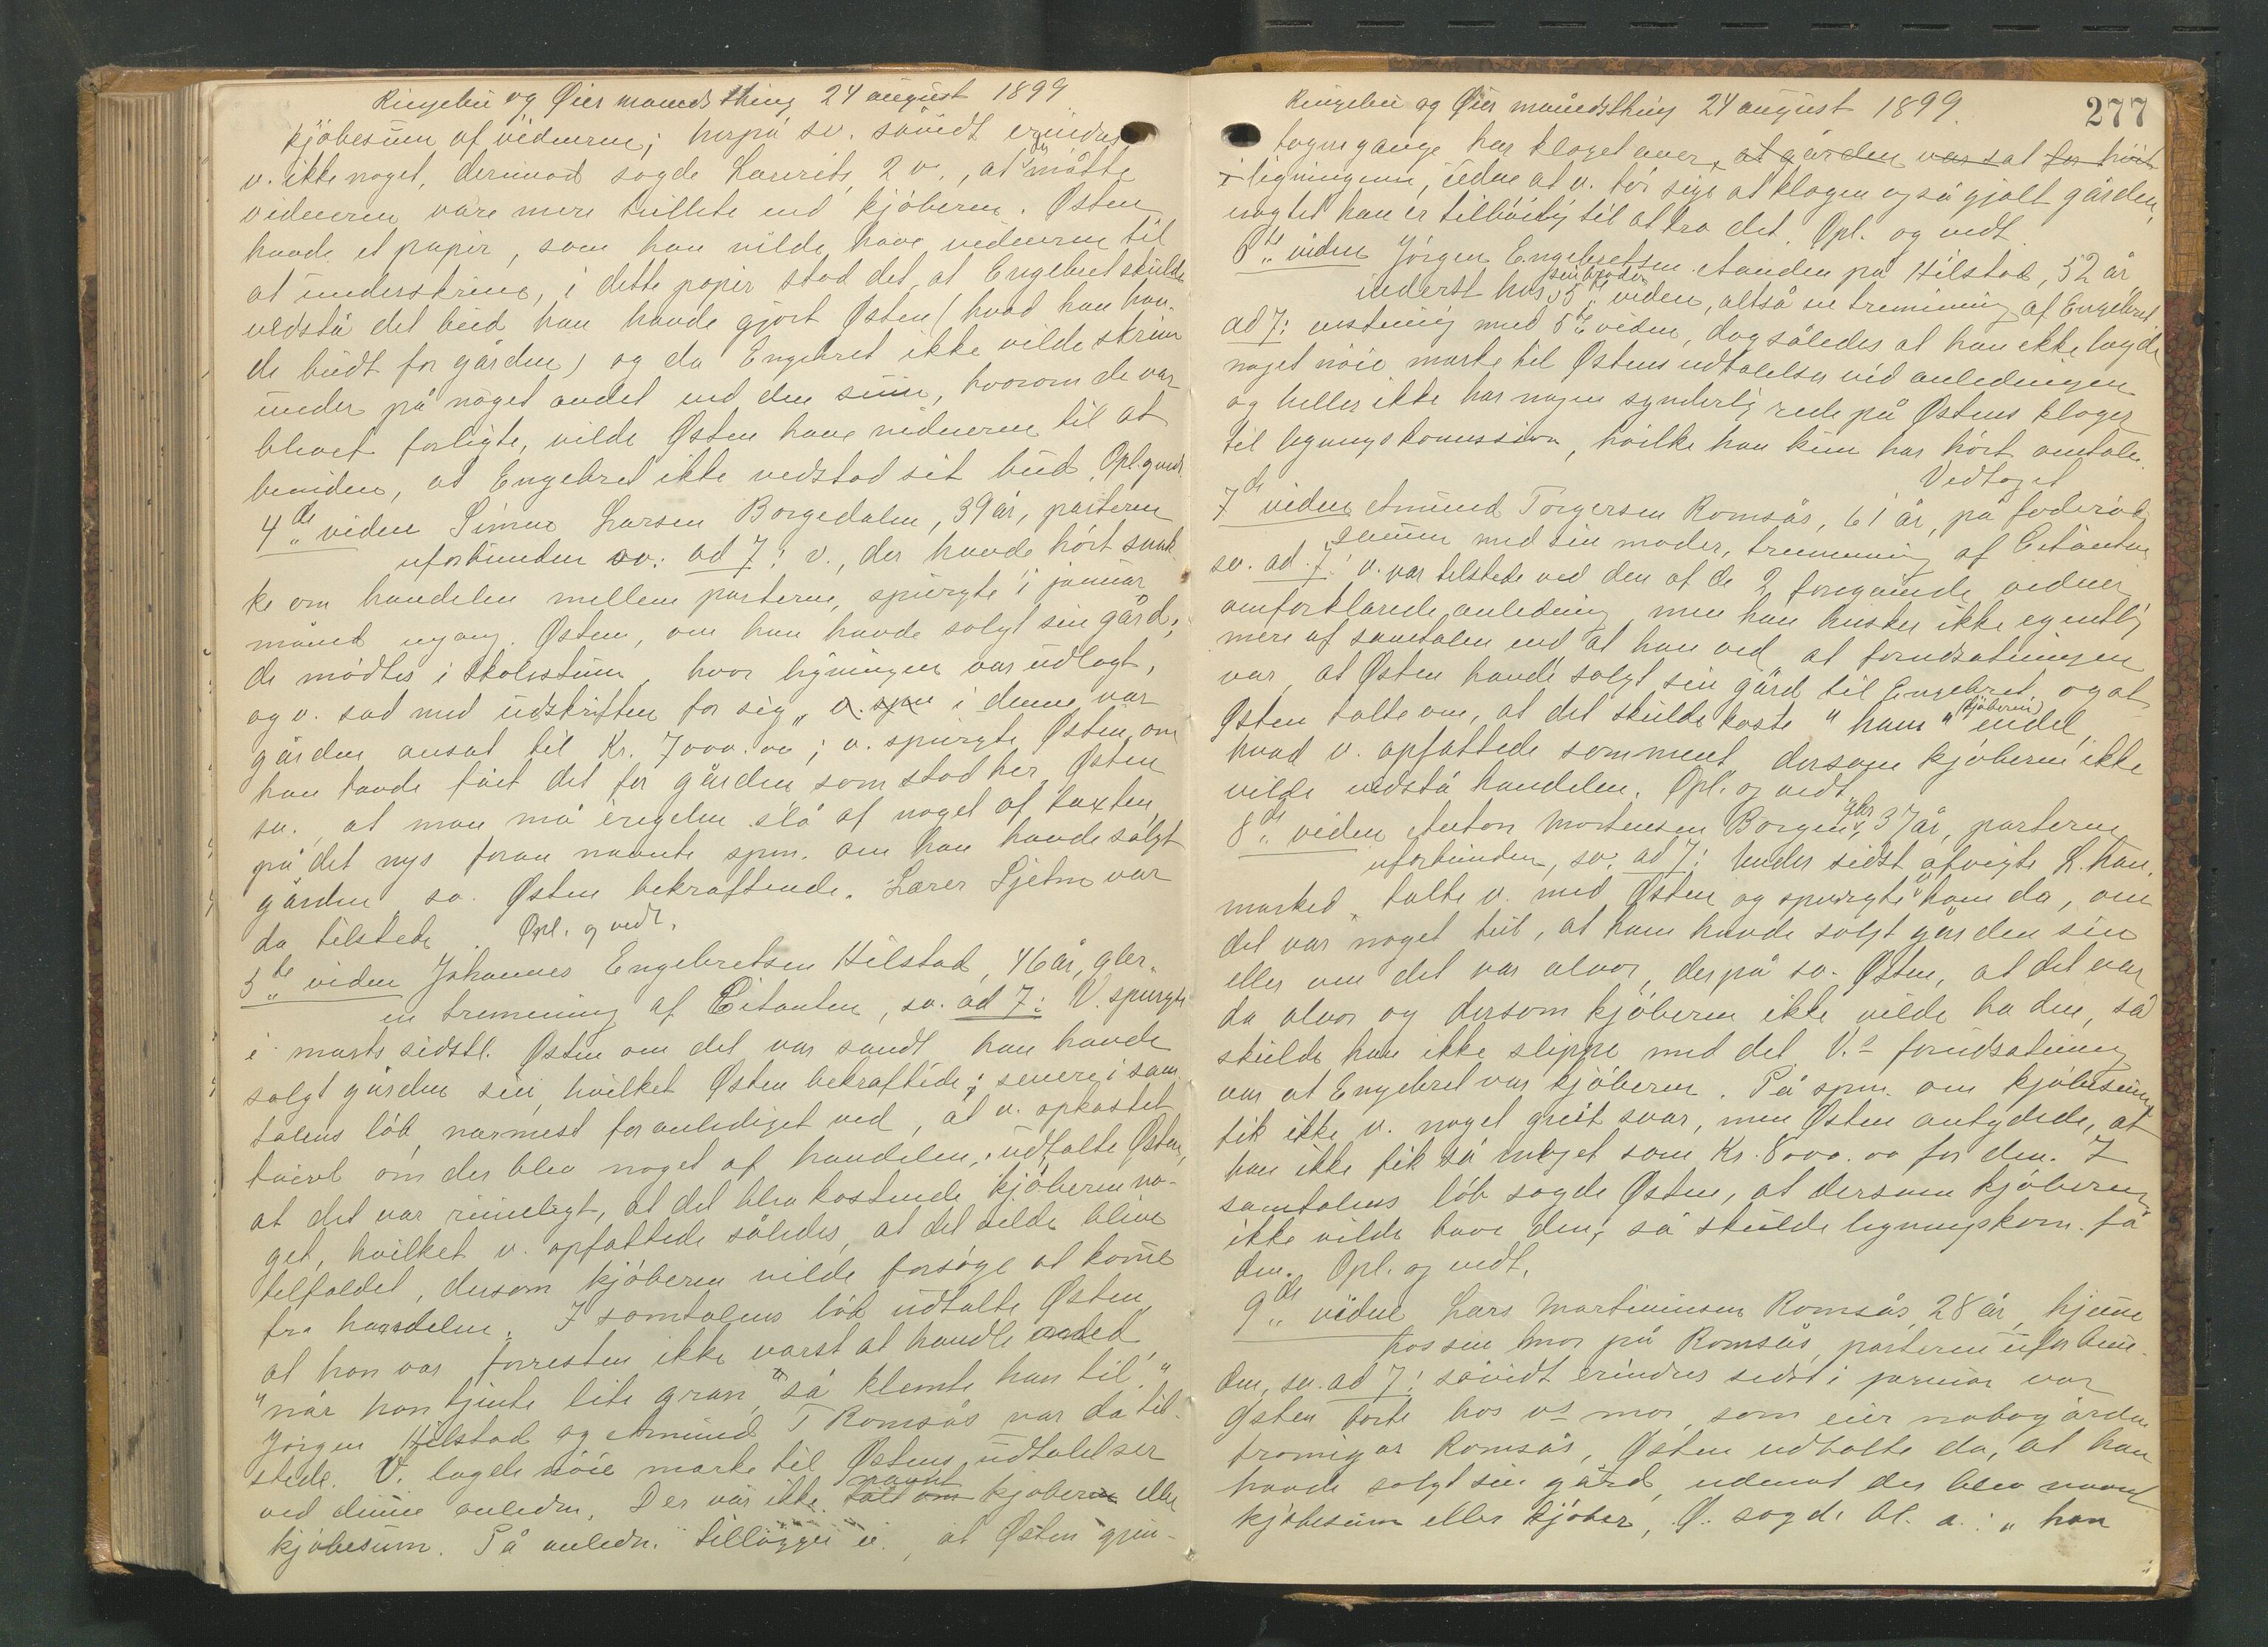 Ringebu og Øier månedsthing 24 august 1899
kjöbesum af vidnerne; herpå sv. såvidt erindres
v. ikke noget, derimod sagde Laurits, 2 v., at da måtte
vidnerne være mere tullete end kjöberen. Østen
havde et papir, som han vilde have vidnerne til
at underskrive, i dette papir stod det at Engebret skulde
vedstå det bud han havde gjort Østen (hvad han hav-
de budt for gården) og da Engebret ikke vilde skrive
under på noget andet end den sum, hvorom de var
blevet forligte, vilde Østen have vidnerne til at
bevidne, at Engebret ikke vedstod sit bud. Opl. og vedt.
4de vidne Simen Larsen Borgedalen, 39 år, parterne
uforbunden sv. ad 7: v., der havde hört snak-
ke om handelen mellem parterne, spurgte i januar
måned engang Østen, om han havde solgt sin gård;
de mødtes i skolestuen, hvor ligningen var udlagt,
og v. sad med udskriften for sig, v. spm i denne var
gården ansat til Kr. 7000.00; v. spurgte Østen om
han havde fået det for gården som stod her. Østen
sv., at man må i regelen slå af noget af taxten,
på det nys foran nævnte spm. om han havde solgt
gården sv. Østen bekræftende. Lærer Sjetne var
da tilstede. Opl. og vedt.
5te vidne Johannes Engebretsen Hilstad, 46 år, gbr.
en tremening af Citanten, sv. ad 7: V. spurgte
i marts sidstl. Østen om det var sandt han havde
solgt gården sin, hvilket Østen bekræftede; senere i sam-
talens löb, nærmest foranlediget ved, at v. opkastet
tvivl om der blev noget af handelen, udtalte Østen,
at det var rimeligt, at det blev kostende kjöberen no-
get, hvilket v. opfattede således, at det vilde blive
tilfældet, dersom kjöberen vilde forsöge at komme
fra handelen. I samtalens löb udtalte Østen
at han var forresten ikke værst at handle med,
"når han tjente lite gran, så klemte han til."
Jörgen Hilstad og Amund T Romsås var da til-
stede. V. lagde nöie mærke til Østens udtalelser
ved denne anledn. Der var ikke talt om nævnt kjöberen eller
kjöbesum. På anledn. tillægger v., at Østen gjen-
Ringebu og Øier månedsthing 24 august 1899.
277
tagne gange har klaget over, at gården var sat for höit
i ligningen, uden at v. tör sige at klagen også gjalt gården,
uagtet han er tilböielig til at tro det. Opl. og vedt.
6te vidne Jörgen Engebretsen Aanden på Hilstad, 52 år
inderst hos sin broder 5te vidne, altså en tremening af Engebret.
ad 7: enstemmig med 5te vidne, dog således at han ikke lagde
noget nöie mærke til Østens udtalelser ved anledningen
og heller ikke har nogen synderlig rede på Østens klager
til ligningskomission, hvilke han kun har hört omtale.
Vedtaget
7de vidne Amund Torgersen Romsås, 61 år, på foderåd
sammen med sin moder, tremening af Citanten
sv. ad. 7: v. var tilstede ved den af de 2 foregående vidner
omforklarede anledning, men han husker ikke egentlig
mere af samtalen end at han ved, at forudsætningen
var, at Østen havde solgt sin gård til Engebret, og at
Østen talte om, at det skulde koste "ham" (kjöberen) endel,
hvad v. opfattede som ment, dersom kjöberen ikke
vilde vedstå handelen. Opl. og vedt.
8de vidne Anton Mortensen Borgen, gbr 37 år, parterne
uforbunden, sv. ad 7: Under sidst afvigte L.ham.
marked talte v. med Østen og spurgte v ham da, om
det var noget tul, at han havde solgt gården sin
eller om det var alvor, derpå sv. Østen, at det var
da alvor og dersom kjöberen ikke vilde ha den, så
skulde han ikke slippe med det. V.s forudsætning
var at Engebret var kjöberen. På spm. om kjöbesum
fik ikke v. noget greit svar, men Østen antydede, at
han ikke fik så meget som Kr. 8000.00 for den. I
samtalens löb sagde Østen, at dersom kjöberen
ikke vilde have den, så skulde ligningskom. få
den. Opl. og vedt.
9de vidne Lars Martiniusen Romsås, 28 år, hjemme
hos sin mor på Romsås, parterne uforbun-
den, sv. ad 7: såvidt erindres sidst i januar var
Østen borte hos v.s mor, som eier nabogården
Romsås, Østen udtalte da, at han
havde solgt sin gård, uden at der blev nævnt
kjöbesum eller kjöber, Ø. sagde bl. a.: "han